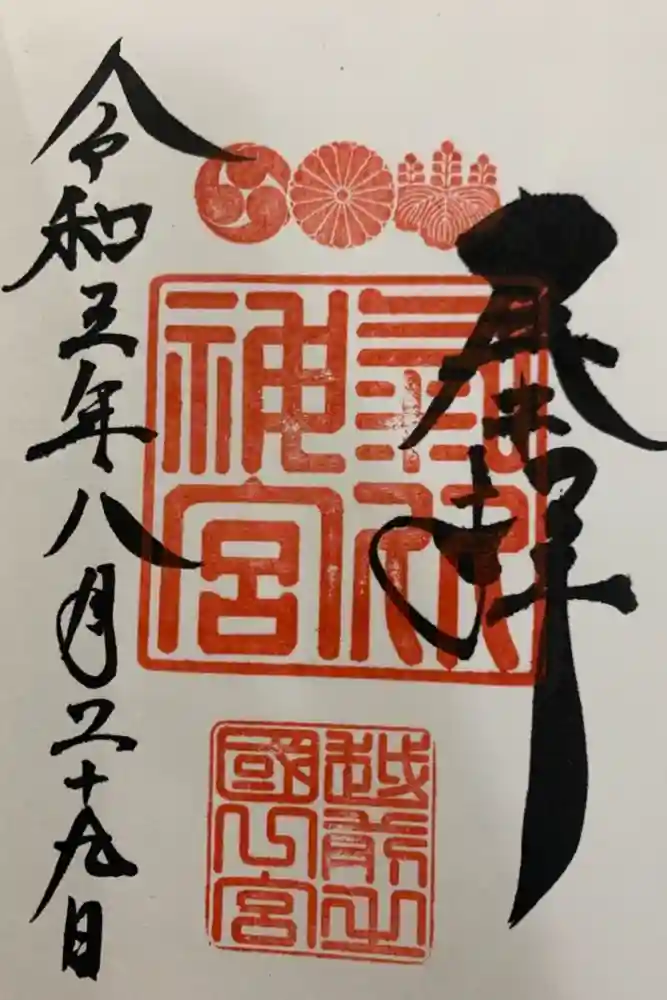 奉拝
氣比
神宮
越前之
國一宮
令和五年八月二十九日